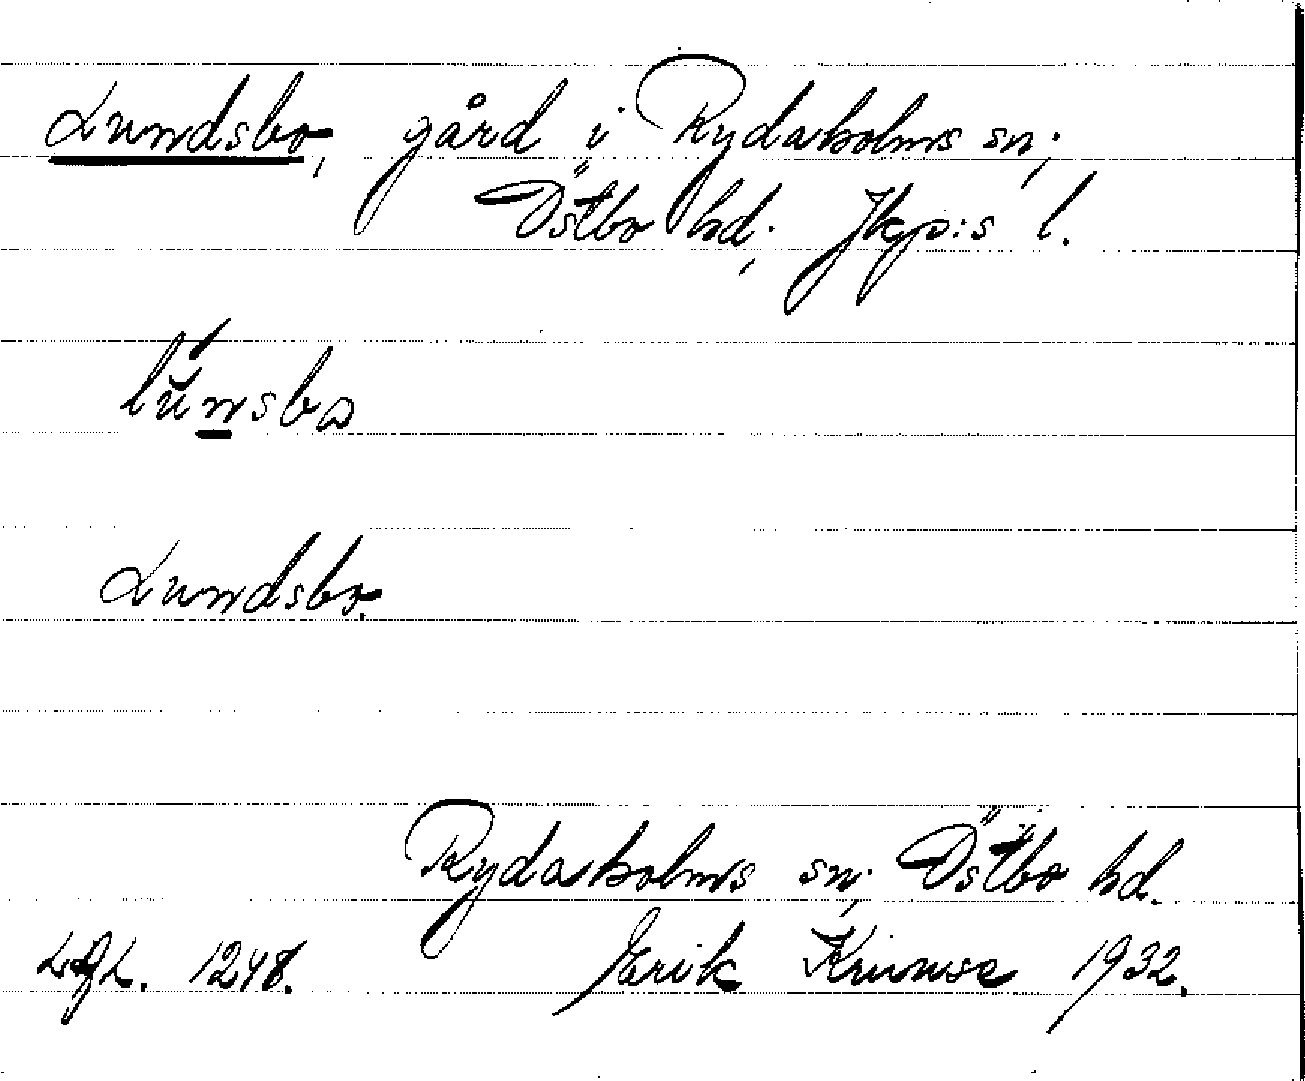 Lundsbo, gård i Rydaholms sn;
Östbo hd; Jkp:s l.
lu̇nsbo
Lundsbo.
Rydaholms sn; Östbo hd.
1248. Erik 1932.